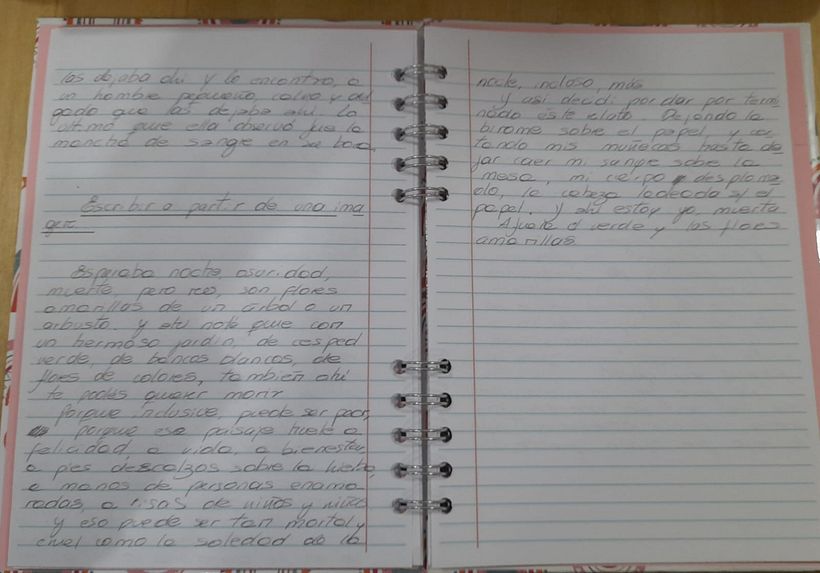 las dejaba ahi y lo encontro, a
un hombre pequeño, calvo y del
gado que las dejaba ahi. Lo
ultimo que ella observó fue la
mancha de sangre en su boca.
Escribir a partir de una ima
gen.
Esperaba noche, oscuridad,
muerte, pero no, son flores
amarillas de un árbol o un
arbusto. y ahi noté que con
un hermoso jardin, de cesped
verde, de bancos blancos, de
flores de colores, tambien ahi
te podes querer morir
Porque inclusive, puede ser peor,
porque ese paisaje huele a
felicidad, a vida, a bienestar
a pies descalzos sobre la
a manos de personas enamo
radas, a risas de niños y niñas
y eso puede ser tan mortal y
cruel como la soledad de la
noche, incluso, más
y asi decidi por dar por termi
nado este relato. Dejando la
birome sobre el papel, y cor
tando mis muñecas hasta de
jar caer mi sangre sobre la
mesa, mi cuerpo desploma
do, la cabeza ladeada s/ el
papel. y ahi estoy yo, muerta
Afuera el verde y las flores
amarillas